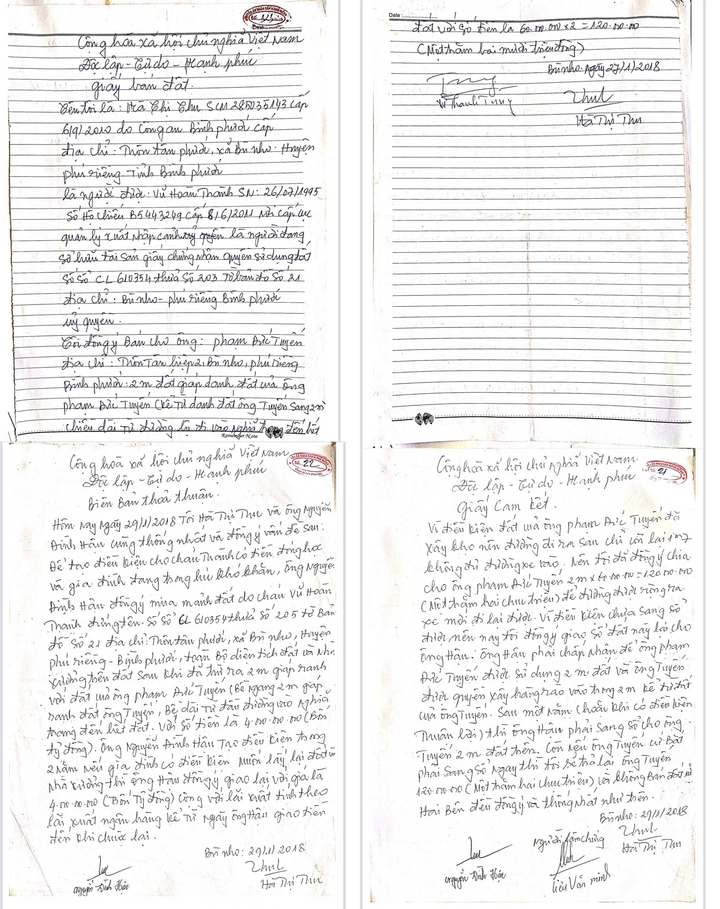 Cộng hòa xã hội chủ nghĩa Việt Nam
Độc lập - Tự do - Hạnh phúc
giấy bán đất.
Tên tôi là: Hà Thị Thu SCM 285035143 cấp
6/9/2010 do Công an Bình phước cấp
địa chỉ: Thôn tân phước, xã Bù nho - Huyện
phú riềng - Tỉnh Bình phước
là người được: Vũ Hoàn Thành SN: 26/07/1995
Số Hộ chiếu B5443249 cấp 8/6/2011 Nơi cấp cục
quản lý xuất nhập cảnh quyền là người đang
sở hữu tài sản giấy chứng nhận quyền sử dụng đất
Số số CL 610354 thửa số 203 Tờ bản đồ số 21
địa chỉ: Bù nho - phú riềng Bình phước
uỷ quyền.
Tôi đồng ý Bán cho ông: phạm Đức Tuyên
địa chỉ: Thôn Tân hiệp 2, Bù nho, phú riềng
Bình phước: 2m đất giáp danh đất của ông
phạm Đức Tuyên (kể từ danh đất ông Tuyên sang 2m
chiều dài từ đường lộ đi vào nghĩa đến hết
đất với số tiền là 60.00.00 x 2 = 120.00.00
(Một trăm hai mươi triệu đồng)
Bù nho: Ngày 27/1/2018
Hà Thị Thu
22
Cộng hòa xã hội chủ nghĩa Việt Nam
Độc lập - Tự do - Hạnh phúc
Biên Bản thoả thuận.
Hôm nay ngày 29/1/2018 Tôi Hà Thị Thu và ông Nguyễn
Đình Hậu cùng thống nhất và đồng ý vấn đề sau:
Để tạo điều kiện cho cháu Thành có tiền đóng học
và gia đình đang trong lúc khó khăn, ông Nguyễn
Đình Hậu đồng ý mua mảnh đất do cháu Vũ Hoàn
Thành đứng tên Số số CL 610354 thửa số 205 tờ Bản
đồ số 21 địa chỉ: Thôn tân phước, xã Bù nho, Huyện
phú riềng - Bình phước, toàn Bộ diện tích đất và Nhà
xưởng trên đất sau khi đã trừ ra 2m giáp ranh
với đất của ông phạm Đức Tuyên (Bề ngang 2m giáp
ranh đất ông Tuyên, Bề dài từ đầu đường vào nghĩa
trang đến hết đất. Với số tiền là 4.00.00.00 (Bốn
tỷ đồng). Ông Nguyễn Đình Hậu Tạo điều kiện trong
2 năm nếu gia đình có điều kiện muốn lấy lại đất và
Nhà xưởng thì ông Hậu đồng ý giao lại với giá là
4.00.00.00 (Bốn Tỷ đồng) Cộng với lãi xuất tính theo
lãi xuất ngân hàng kể từ ngày ông Hậu giao tiền
đến khi chuộc lại.
Bù nho: 29/1/2018
Nguyễn Đình Hậu
Hà Thị Thu
21
Cộng hòa xã hội chủ nghĩa Việt Nam
Độc lập - Tự do - Hạnh phúc
Giấy Cam kết.
Vì điều kiện đất của ông phạm Đức Tuyên đã
xây kho nên đường đi ra sau chỉ còn lại
không đủ đường xe vào. Nên tôi đã đồng ý chia
cho ông phạm Đức Tuyên 2m x 60.00.00 = 120.00.00
(Một trăm hai chục triệu) để đường được rộng ra
xe mới đi lại được. Vì điều kiện chưa sang sổ
được nên nay tôi đồng ý giao sổ đất này lại cho
ông Hậu. Ông Hậu phải chấp nhận để ông phạm
Đức Tuyên được sử dụng 2m đất và ông Tuyên
được quyền xây hàng rào vào trong 2m kể từ đất
của ông Tuyên. Sau một năm (hoặc khi có điều kiện
thuận lợi) thì ông Hậu phải sang sổ cho ông
Tuyên 2m đất trên. Còn nếu ông Tuyên cứ Bắt
phải sang sổ Ngay thì tôi sẽ trả lại ông Tuyên
120.00.00 (Một trăm hai chục triệu) và không Bán đất
Hai Bên đều đồng ý và thống nhất như trên.
Bù nho: 29/1/2018
Người làm chứng
Nguyễn Đình Hậu
Văn minh
Hà Thị Thu